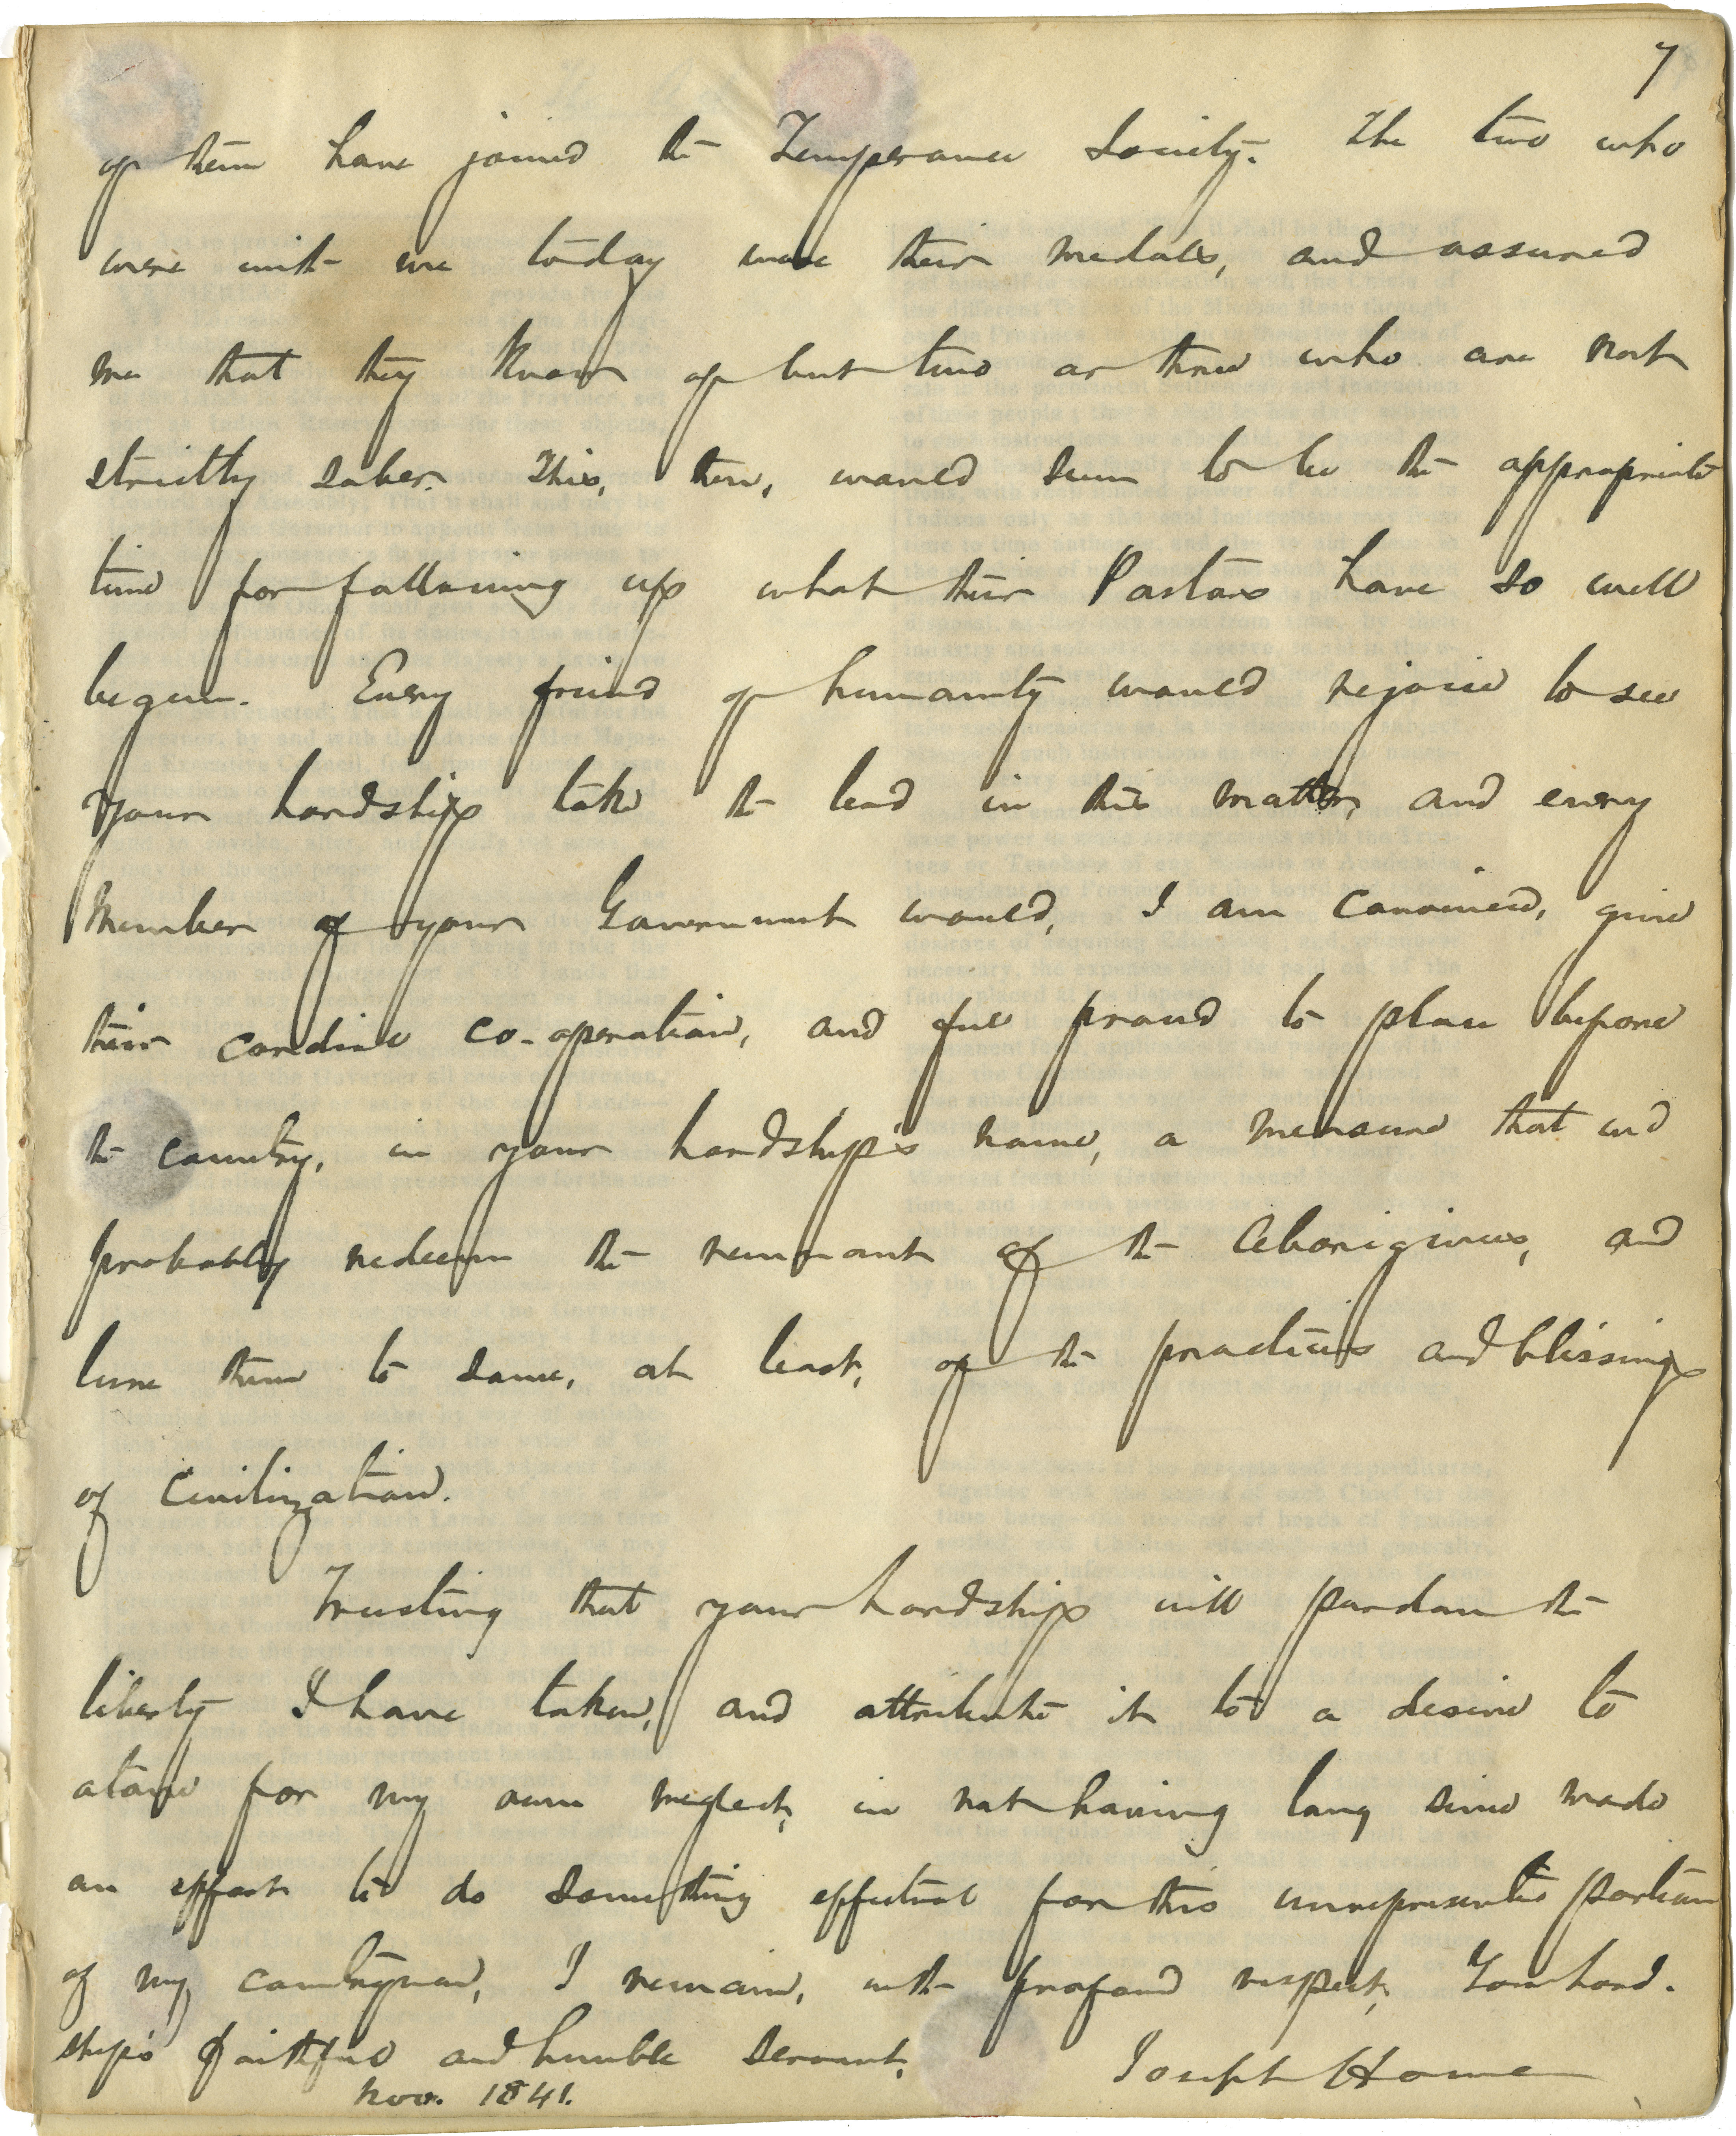 7
of them have joined the Temperance Society. The two who
were with me today wore their medals, and assured
me that they know of but two or three who are not
strictly sober. This, then, would seem to be the appropriate
time for following up what their Pastors have so well
begun. Every friend of humanity would rejoice to see
your Lordship take the lead in this matter, and every
member of your Government would, I am convinced, give
their cordial co-operation, and feel proud to place before
the country, in your Lordship's name, a measure that will
probably redeem the remnant of the Aborigines, and
lure them to some, at least, of the practices and blessings
of Civilization.
Trusting that your Lordship will pardon the
liberty I have taken, and attribute it to a desire to
atone for my own neglect, in not having long since made
an effort to do something effectual for this unrepresented portion
of my countrymen, I remain, with profound respect, Your Lord-
ship's faithful and humble servant,
Joseph Howe
Nov. 1841.